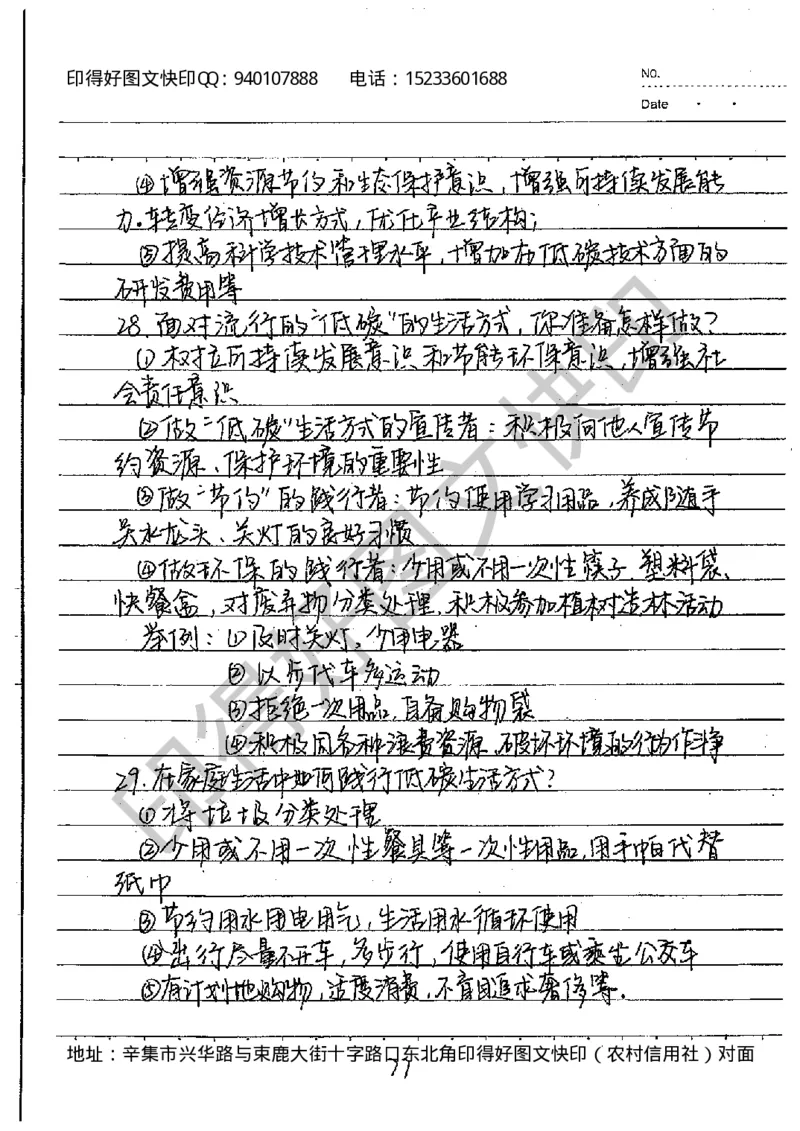 印得好图文快印QQ：940107888 电话：15233601688
NO.
Date
④增强资源节约和生态保护意识，增强可持续发展能
力.转变经济增长方式，优化产业结构；
⑤提高科学技术管理水平，增加在低碳技术方面的
研发费用等
28.面对流行的“低碳”的生活方式，你准备怎样做？
①树立可持续发展意识和节能环保意识，增强社
会责任意识
②做“低碳”生活方式的宣传者：积极向他人宣传节
约资源、保护环境的重要性
③做“节约”的践行者：节约使用学习用品，养成随手
关水龙头、关灯的良好习惯
④做环保的践行者：少用或不用一次性筷子、塑料袋、
快餐盒，对废弃物分类处理，积极参加植树造林活动
举例：①及时关灯。少用电器
②以步代车多运动
③拒绝一次用品，自备购物袋
④积极同各种浪费资源、破坏环境的行为作斗争
29.在家庭生活中如何践行低碳生活方式？
①将垃圾分类处理
②少用或不用一次性餐具等一次性用品，用手帕代替
纸巾
③节约用水用电用气，生活用水循环使用
④出行尽量不开车，多步行，使用自行车或乘坐公交车
⑤有计划地购物，适度消费，不盲目追求奢侈等.
印得好图文快印
地址：辛集市兴华路与束鹿大街十字路口东北角印得好图文快印（农村信用社）对面